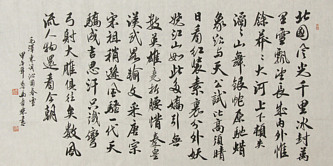 北國風光千里冰封萬
里雪飄望長城內外惟
餘莽莽大河上下頓失
滔滔山舞銀蛇原馳蠟
象欲與天公試比高須晴
日看紅裝素裹分外妖
嬈江山如此多嬌引無
數英雄競折腰惜秦皇
漢武略輸文采唐宗
宋祖稍遜風騷一代天
驕成吉思汗只識彎
弓射大雕俱往矣數風
流人物還看今朝
毛澤東詞沁園春雪
甲午年